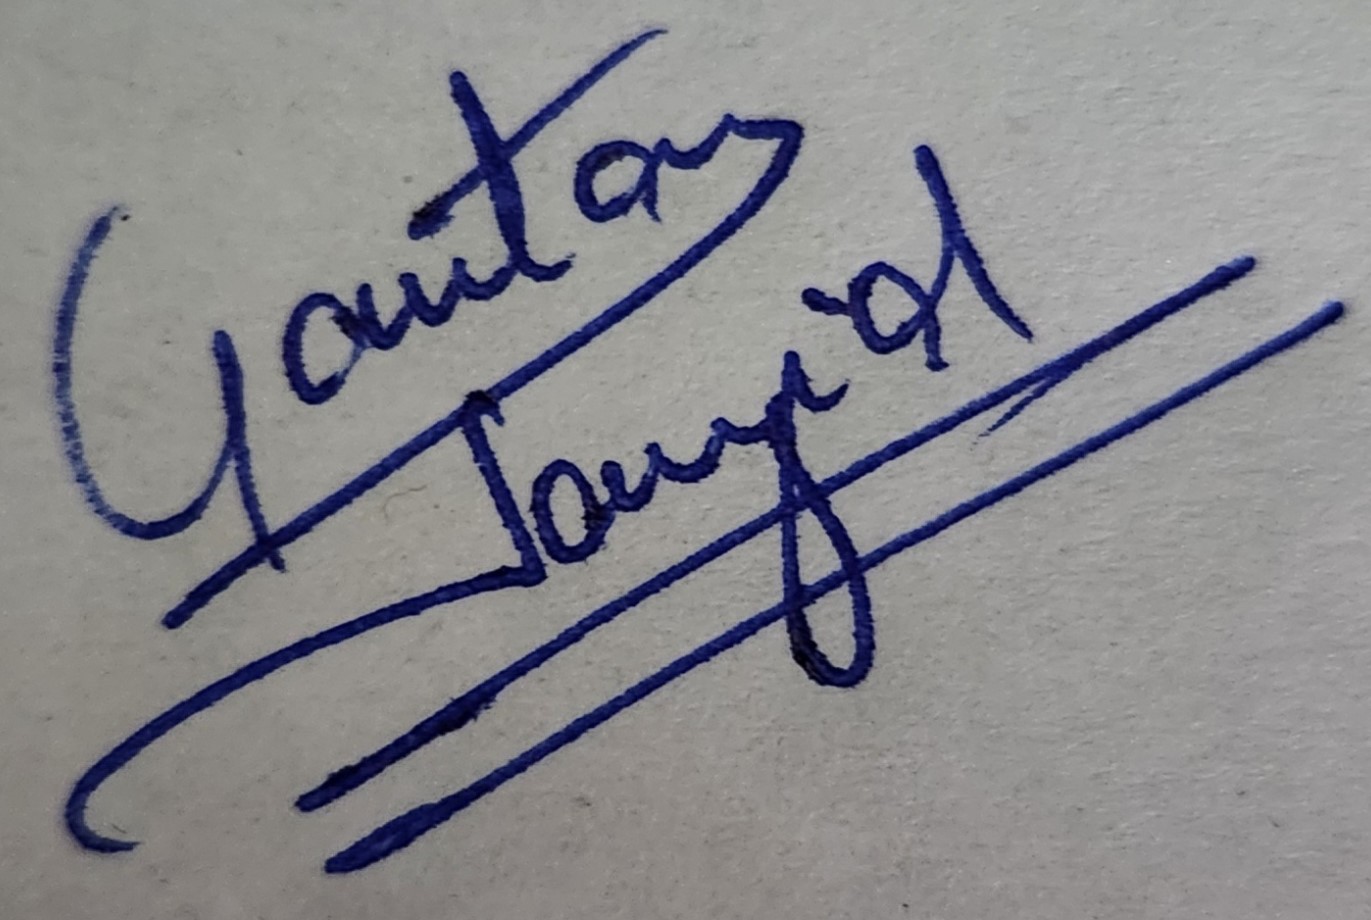 Gautam
Jangid